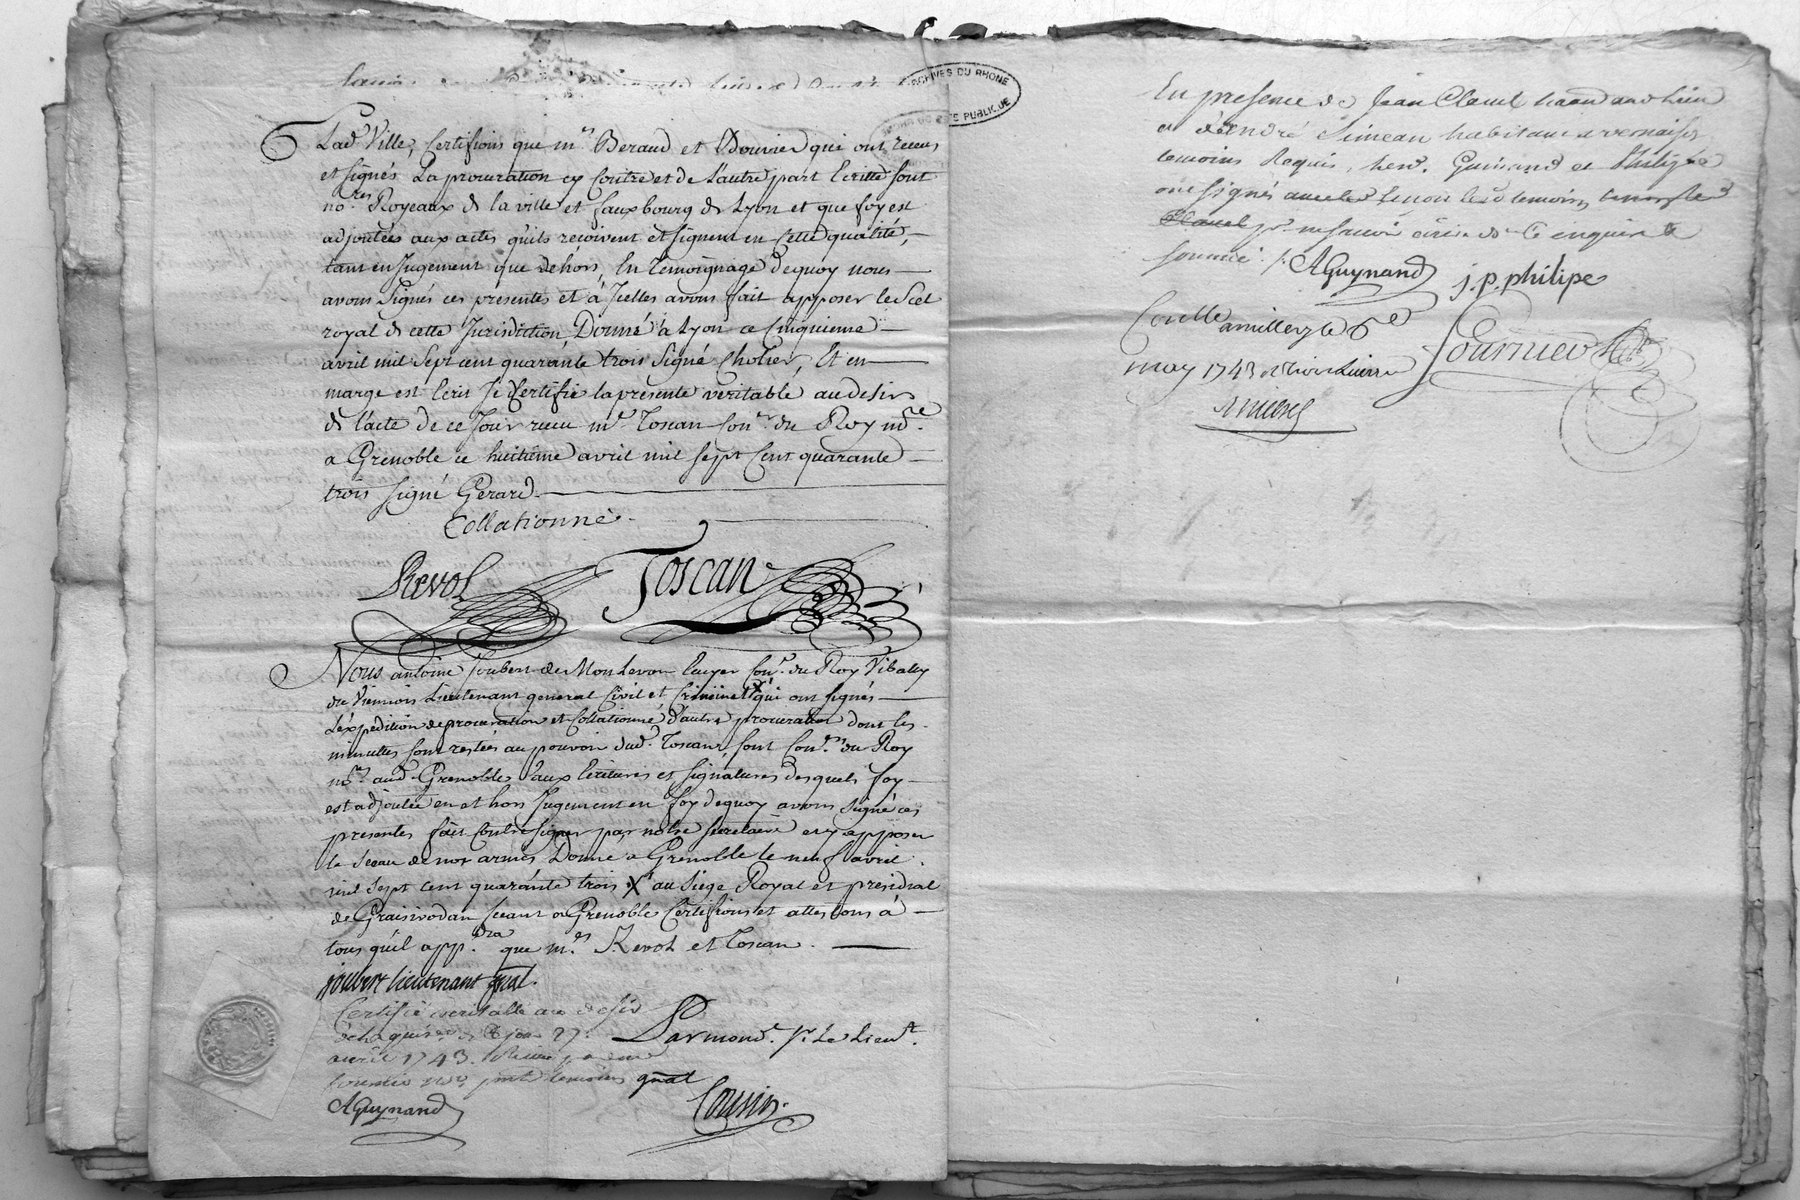 Lad.e Ville, Certifions que m.rs Beraud et Bouvier qui ont receus
et signés La procuration cy Contre et de L'autre part Ecritte sont
no.res Royeaux de la ville et fauxbourg de Lyon et que foy est
adjoutées aux actes qu'ils reçoivent et signent en cette qualité,
tant en Jugement que dehors, En Temoignage de quoy nous
avons Signés ces presentes et à Jcelles avons fait apposer le Scel
royal de cette Jurisdiction, Donné à Lyon ce Cinquieme
avril mil sept cent quarante trois signé Cholier, Et en
marge est Ecrit Je Certifie la presente veritable au desir
de l'acte de ce Jour receu m.e Toscan Con.er du Roy no.re
a Grenoble ce huitième avril mil sept Cent quarante
trois signé Gerard
Collationné
Revol Toscan
Nous antoine Joubert de Ecuyer Con.er du Roy Vibally
du Viennois Lieutenant general Civil et Criminel qui ont signés
L'expedition de procuration et Collationné d'autre procuration dont les
minuttes sont restées au pouvoir dud. Toscan, sont Con.rs du Roy
no.res aud. Grenoble aux Ecritures et signatures desquels foy
est adjoutée en et hors Jugement en foy de quoy avons signé ces
presentes fait Contresigner par notre secretaire et y apposer
le sceau de nos armes Donné a Grenoble le neuf avril
mil sept cent quarante trois X au Siege Royal et presidial
de Graisivodan seeant a Grenoble Certifions et attestons à
tous qu'il app.dra que m.es Revol et Toscan.
joubert lieutenant gnal.
Certifié veritable au desir
27
avril 1743.
temoins gnal
AGuynand
Parmond. pr. Le Lieut.
Cousin
ARCHIVES DU RHONE
En presence de Jean Claud
et d'andré Simean habitant
temoins Requis, Guinand et Philipe
ont signés temoins
enquis et
sommé
AGuynand j. p. philipe
Conllé a millery le 6e
may 1743
Fournier